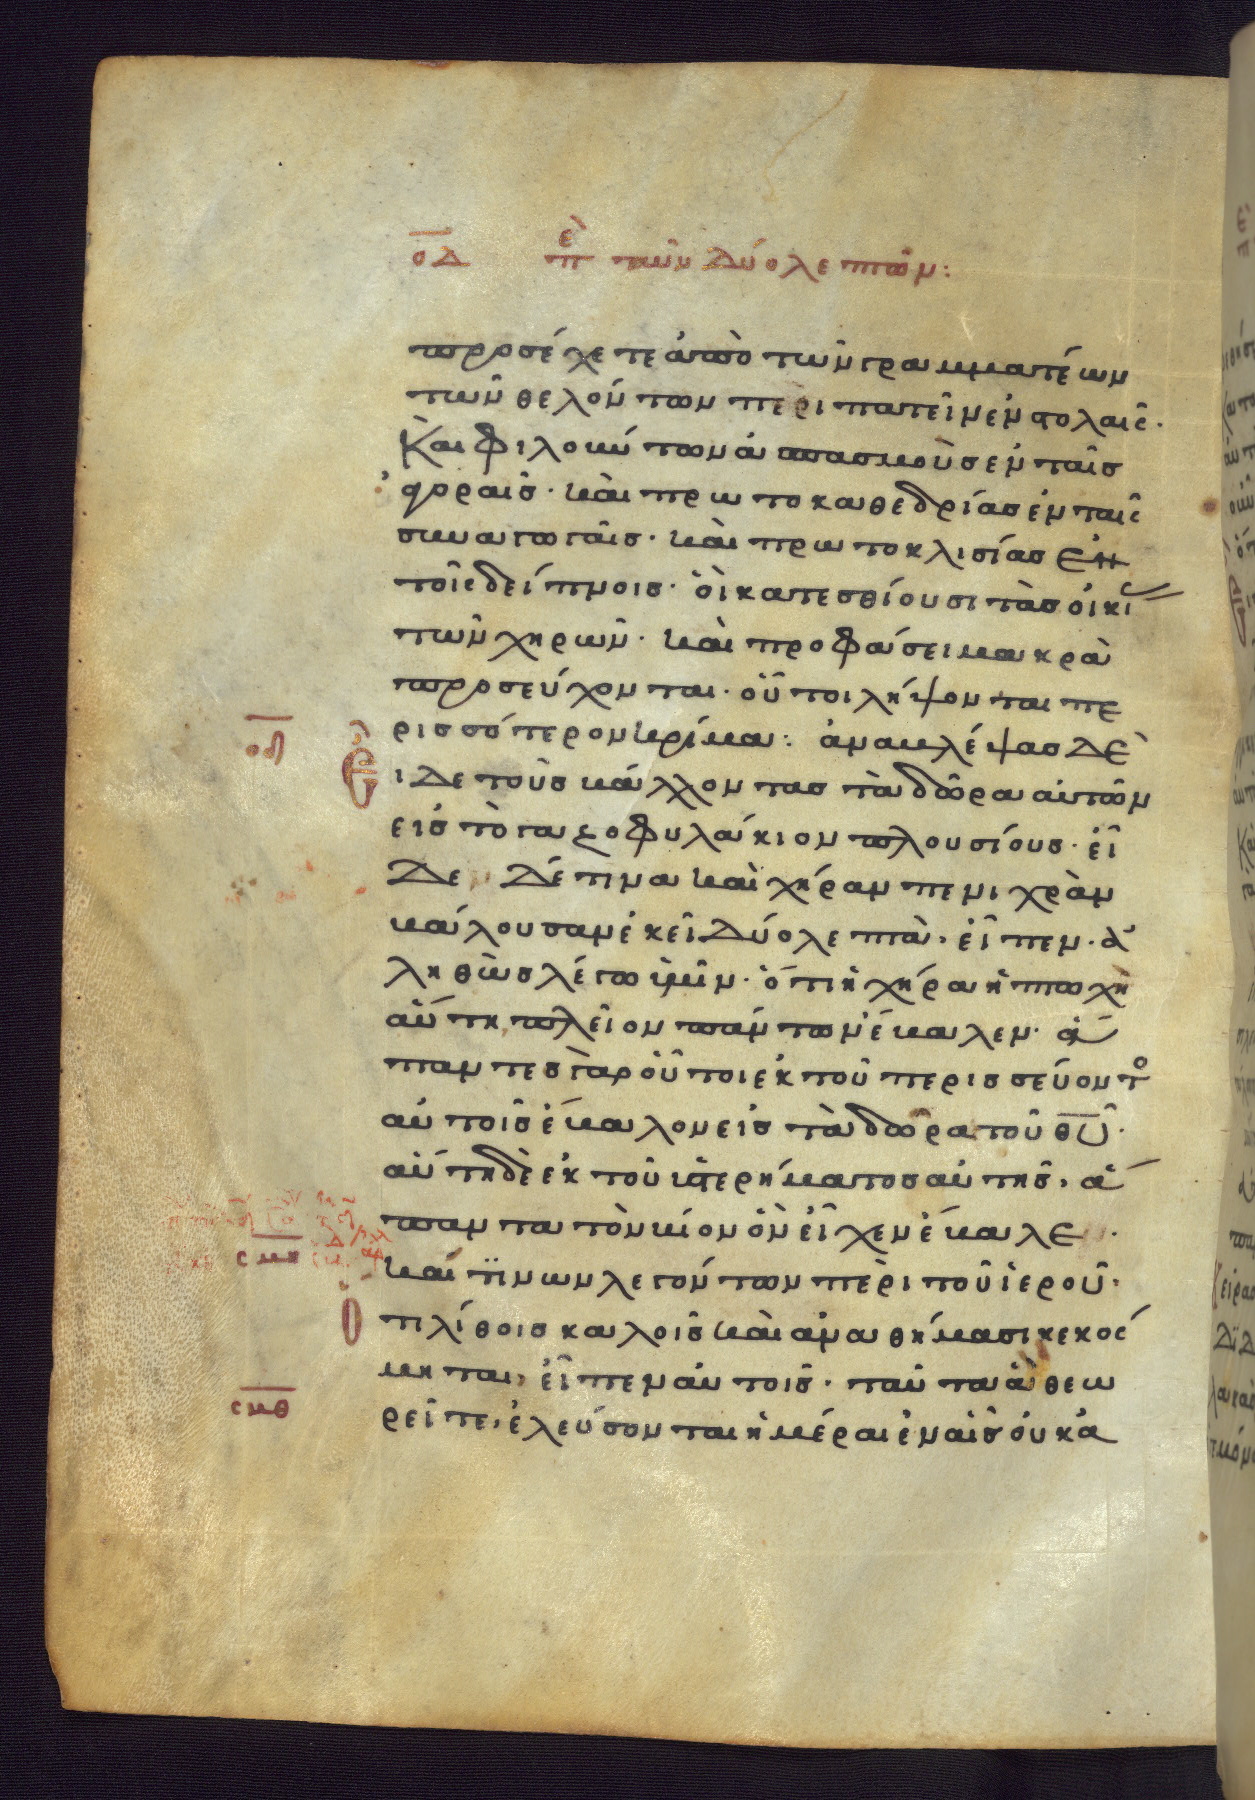 οδ πε των δύο λεπτῶν:
προσέχετε ἀπὸ τῶν γραμματέων
τῶν θελόντων περιπατεῖν ἐν στολαῖς·
Καὶ φιλούντων ἀσπασμοὺς ἐν ταῖς
ἀγοραῖς· καὶ πρωτοκαθεδρίας ἐν ταῖς
συναγωγαῖς· καὶ πρωτοκλισίας ἐν
τοῖς δείπνοις· οἱ κατεσθίουσι τὰς οἰκί
τῶν χηρῶν· καὶ προφάσει μακρὰ
προσεύχονται· οὗτοι λήψονται πε
ρισσότερον κρίμα: ἀναβλέψας δὲ
ι δε τοὺς βάλλοντας τὰ δῶρα αὐτῶν
εἰς τὸ γαζοφυλάκιον πλουσίους· εἶ
δε δέ τινα καὶ χήραν πενιχρὰν
βάλουσαν ἐκεῖ δύο λεπτὰ· εἶπεν· ἀ
ληθῶς λέγω ὑμῖν· ὅτι ἡ χήρα ἡ πτωχὴ
αὕτη πλεῖον πάντων ἔβαλεν· ἅ
παντες γὰρ οὗτοι ἐκ τοῦ περισσεύοντο
αὐτοῖς ἔβαλον εἰς τὰ δῶρα τοῦ θυ·
αὕτη δὲ ἐκ τοῦ ὑστερήματος αὐτῆς· ἅ
παντα τὸν βίον ὃν εἶχεν ἔβαλε·
καί τινων λεγόντων περὶ τοῦ ἱεροῦ·
ὅτι λίθοις καλοῖς καὶ ἀναθήμασι κεκόσ
μηται, εἶπεν αὐτοῖς· ταῦτα ἃ θεω
ρεῖτε, ἐλεύσονται ἡμέραι ἐν αἷς οὐκ ἀ
οδ
σμη
σμθ